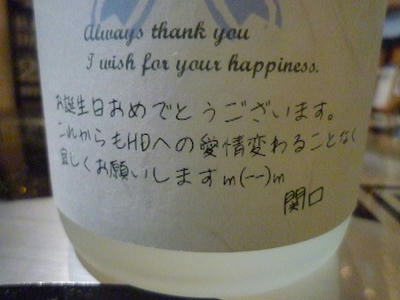 Always thank you
I wish for your happiness.
お誕生日おめでとうございます。
これからもHDへの愛情変わることなく
宜しくお願いしますm(--)m
関口